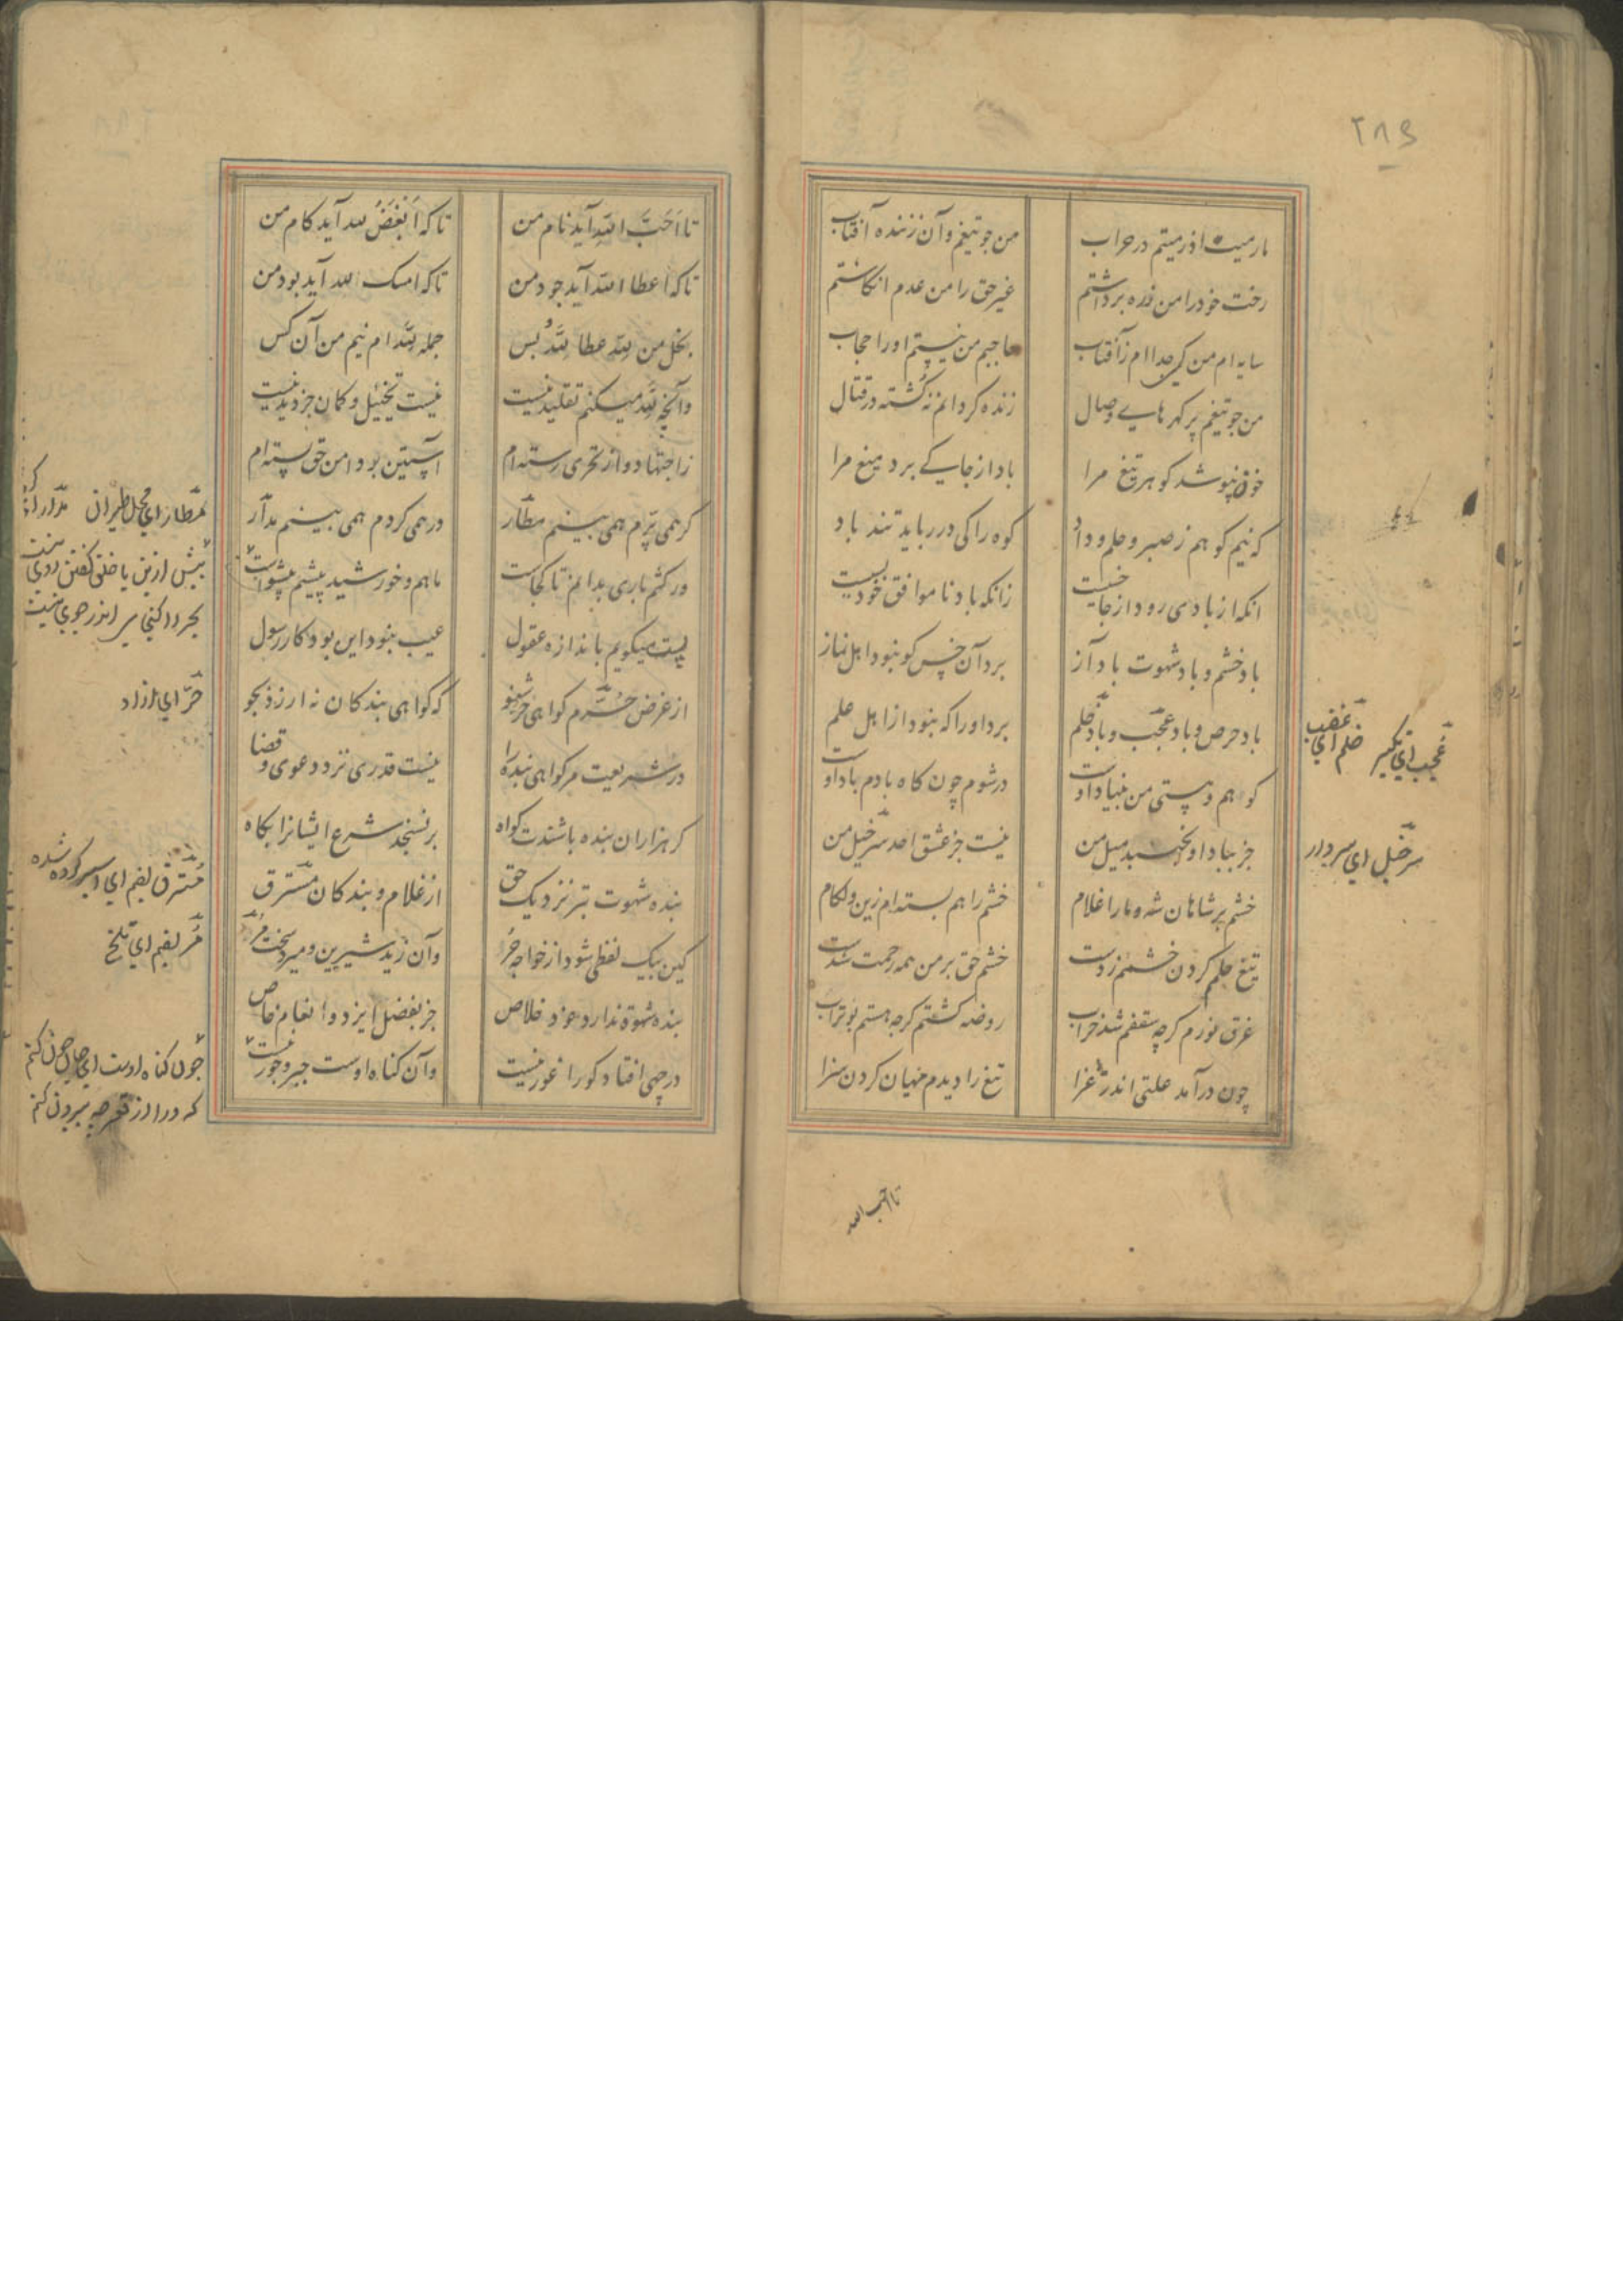 ۲۸۹
مارمیت اذ رمیتم در حراب
من چو تیغم وآن زننده آفتاب
رخت خود را من زره برداشتم
غیر حق را من عدم انکاشتم
سایه ام من کی جدا ام ز آفتاب
حاجبم من نیستم او را حجاب
من چو تیغم پر کهرهای وصال
زنده کردانم نه کشته در قتال
خون نپوشد کوهر تیغ مرا
باد از جای کی برد میغ مرا
که نیم کوهم ز صبر و حلم و داد
کوه را کی در رباید تند باد
انکه از بادی رود از جا خسیست
زانکه باد ناموافق خود بسیست
باد خشم و باد شهوت باد آز
برد آن خس کو نبود اهل نماز
باد حرص و باد عجب و باد خلم
برد او را که نبود از اهل علم
کوهم و هستی من بنیاد اوست
ور شوم چون کاه بادم باد اوست
جز بباد او نجنبد میل من
نیست جز عشق احد سر خیل من
خشم بر شاهان شه و ما را غلام
خشم را هم بسته ام زین و لکام
تیغ حلمم کردن خشمم زدست
خشم حق بر من همه رحمت شدست
غرق نورم کرچه سقفم شد خراب
روضه کشتم کرچه هستم بو تراب
چون در آمد علتی اندر غزا
تیغ را دیدم میان کردن سزا
عجب ای تکبر
خلم ای غضب
سر خیل ای سردار
تا احب الله
تا احب الله آید نام من
تا که ابغض لله آید کام من
تا که اعطا الله آید جود من
تا که امسک لله آید بود من
بخل من لله عطا لله و بس
جمله لله ام نیم من آن کس
وآنچه لله میکنم تقلید نیست
نیست تخییل و کمان جز دید نیست
ز اجتهاد و از تحری رسته ام
آستین بر دامن حق بسته ام
کر همی پرم همی بینم مطار
ور همی کردم همی بینم مدار
ور کشم باری بدانم تا کجاست
ماهم و خورشید پیشم پیشواست
پست میکویم باندازه عقول
عیب نبود این بود کار رسول
از غرض حرم کواهی حر شنو
که کواهی بندکان نه ارزد بجو
در شریعت مر کواهی بنده را
نیست قدری نزد دعوی و قضا
کر هزاران بنده باشندت کواه
بر نسنجد شرع ایشانرا بکاه
بنده شهوت بتر نزدیک حق
از غلام و بندکان مسترق
کین بیک لفظی شود از خواجه حر
وآن زید شیرین و میرد سخت مر
بنده شهوة ندارد خود خلاص
جز بفضل ایزد و انعام خاص
در چهی افتاد کو را غور نیست
وآن کناه اوست جبر و جور نیست
مطار ای محل طیران
بیش ازین با خلق کفتن روی نیست
بحر را کنجای اندر جوی نیست
حر ای ازاد
مسترق بضم ای اسیر کرده شده
مر بضم ای تلخ
چون کناه اوست ای جان چون کنم
که ورا از قعر چه بیرون کنم